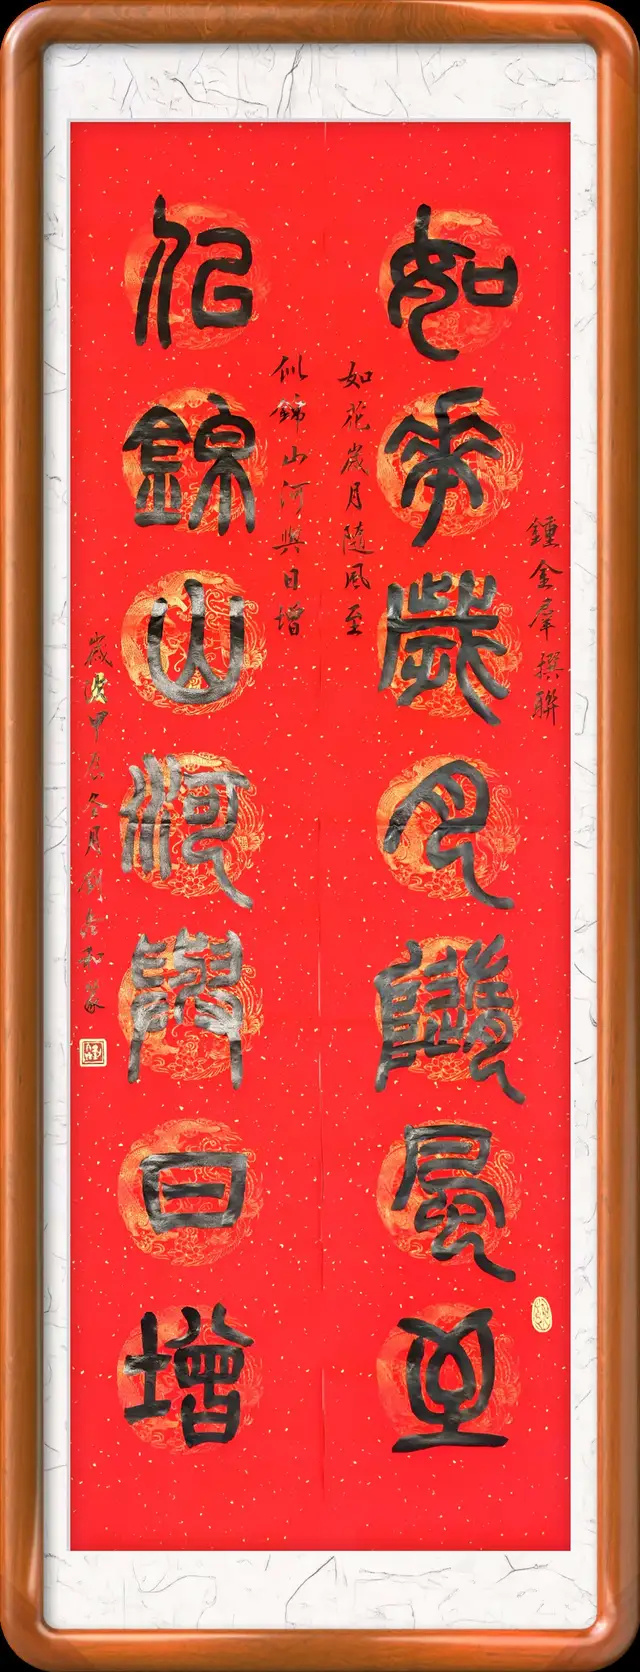 鍾金羣撰聯
如華歲月隨風至
如花歲月隨風至
似錦山河與日增
似錦山河與日增
歲次甲辰冬月劉